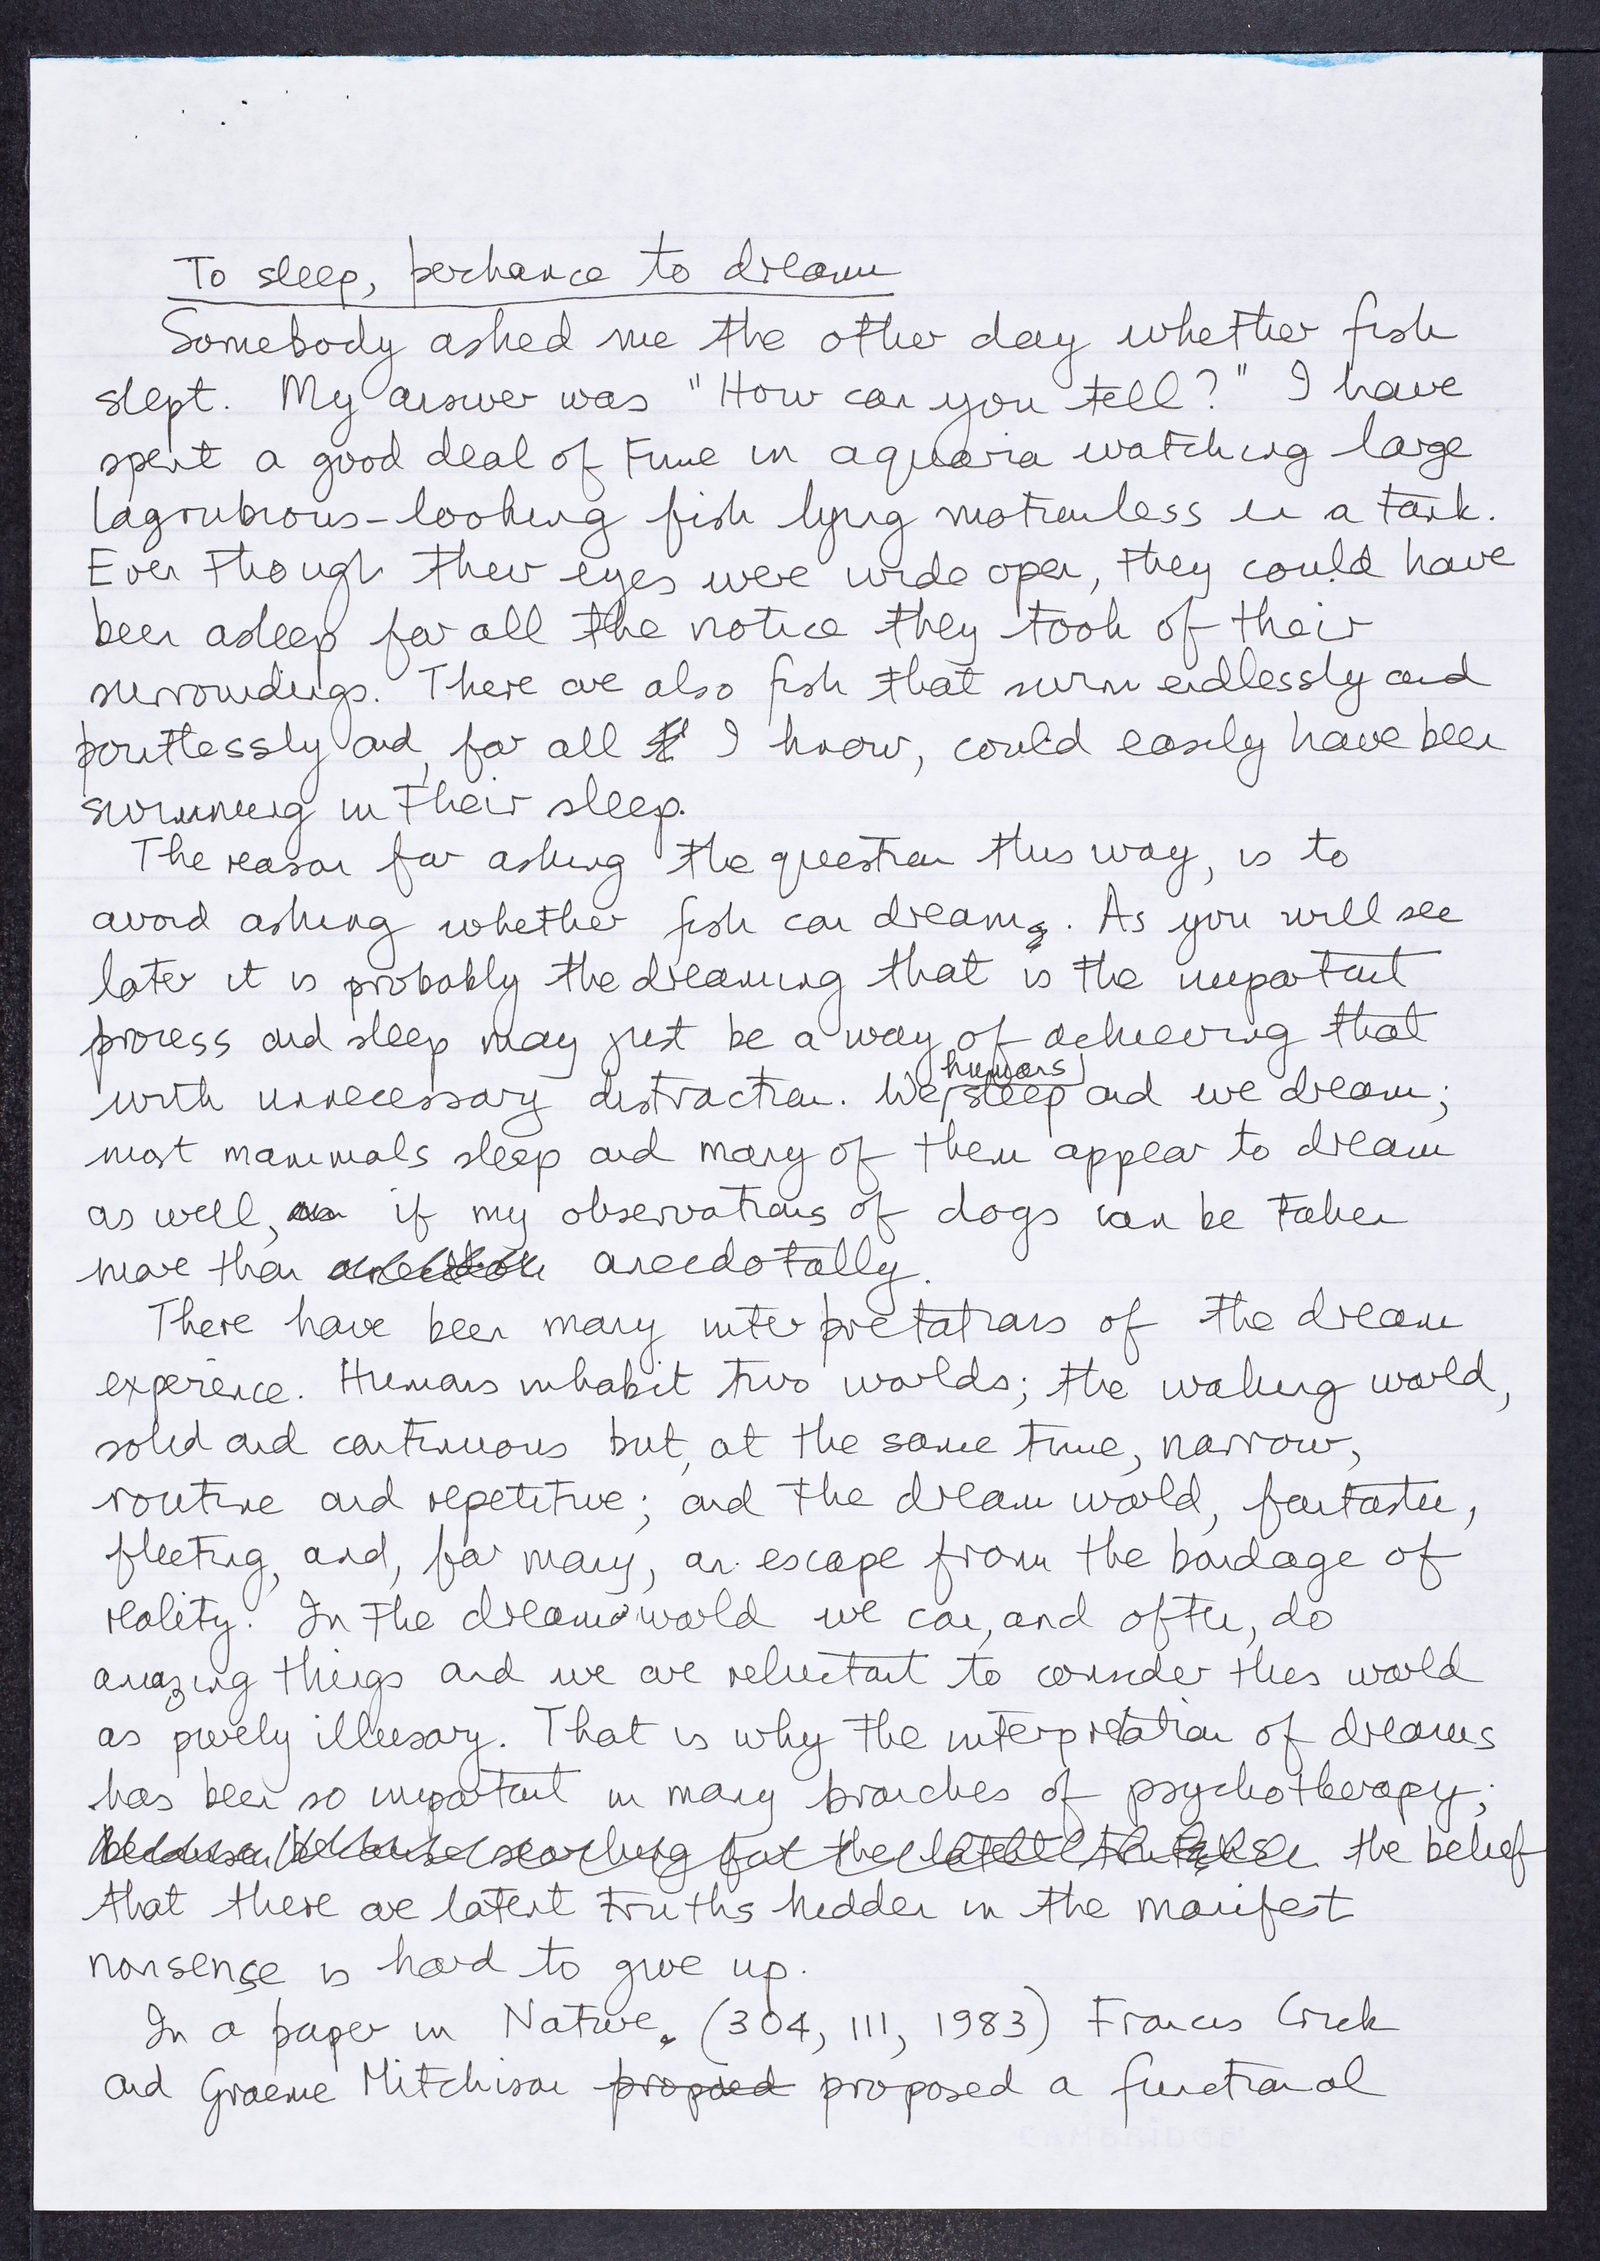 To sleep, perchance to dream
Somebody asked me the other day whether fish
slept. My answer was "How can you tell?" I have
spent a good deal of time in aquaria watching large
lagrubrious-looking fish lying motionless in a tank.
Even though their eyes were wide open, they could have
been asleep for all the notice they took of their
surroundings. There are also fish that swim endlessly and
pointlessly and, for all I know, could easily have been
swimming in their sleep.
The reason for asking the question this way, is to
avoid asking whether fish can dream. As you will see
later it is probably the dreaming that is the important
process and sleep may just be a way of achieving that
with unnecessary distraction. We humans sleep and we dream;
most mammals sleep and many of them appear to dream
as well, if my observations of dogs can be taken
more than anecdotally.
There have been many interpretations of the dream
experience. Humans inhabit two worlds; the waking world,
solid and continuous but, at the same time, narrow,
routine and repetitive; and the dream world, fantastic,
fleeting, and, for many, an escape from the bondage of
reality. In the dream world we can, and often, do
amazing things and we are reluctant to consider this world
as purely illusory. That is why the interpretation of dreams
has been so important in many branches of psychotherapy;
the belief
that there are latent truths hidden in the manifest
nonsense is hard to give up.
In a paper in Nature. (304, 111, 1983) Francis Crick
and Graeme Mitchison proposed a functional